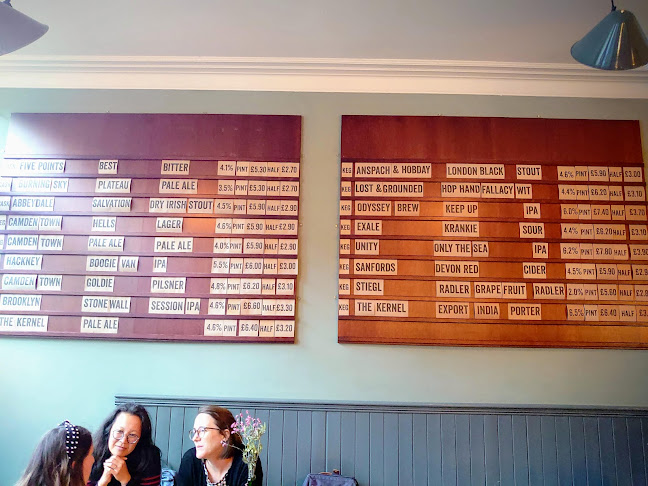 FIVE POINTS BEST BITTER 4.1% PINT £5.30 HALF £2.70
BURNING SKY PLATEAU PALE ALE 3.5% PINT £5.30 HALF £2.70
ABBEYDALE SALVATION DRY IRISH STOUT 4.5% PINT £5.90 HALF £2.90
CAMDEN TOWN HELLS LAGER 4.6% PINT £5.90 HALF £2.90
CAMDEN TOWN PALE ALE PALE ALE 4.0% PINT £5.90 HALF £2.90
HACKNEY BOOGIE VAN IPA 5.5% PINT £6.00 HALF £3.00
CAMDEN TOWN GOLDIE PILSNER 4.8% PINT £6.20 HALF £3.10
BROOKLYN STONEWALL SESSION IPA 4.6% PINT £6.60 HALF £3.30
THE KERNEL PALE ALE 4.6% PINT £6.40 HALF £3.20
KEG ANSPACH & HOBDAY LONDON BLACK STOUT 4.6% PINT £5.90 HALF £3.00
KEG LOST & GROUNDED HOP HAND FALLACY WIT 4.4% PINT £6.20 HALF £3.10
KEG ODYSSEY BREW KEEP UP IPA 6.0% PINT £7.40 HALF £3.70
KEG EXALE KRANKIE SOUR 4.4% PINT HALF
KEG UNITY ONLY THE SEA IPA 6.2% PINT £7.80 HALF
KEG SANFORDS DEVON RED CIDER 4.5% PINT £5.90 HALF
KEG STIEGL RADLER GRAPEFRUIT RADLER 2.0% PINT £5.60 HALF
KEG THE KERNEL EXPORT INDIA PORTER PINT £6.40 HALF